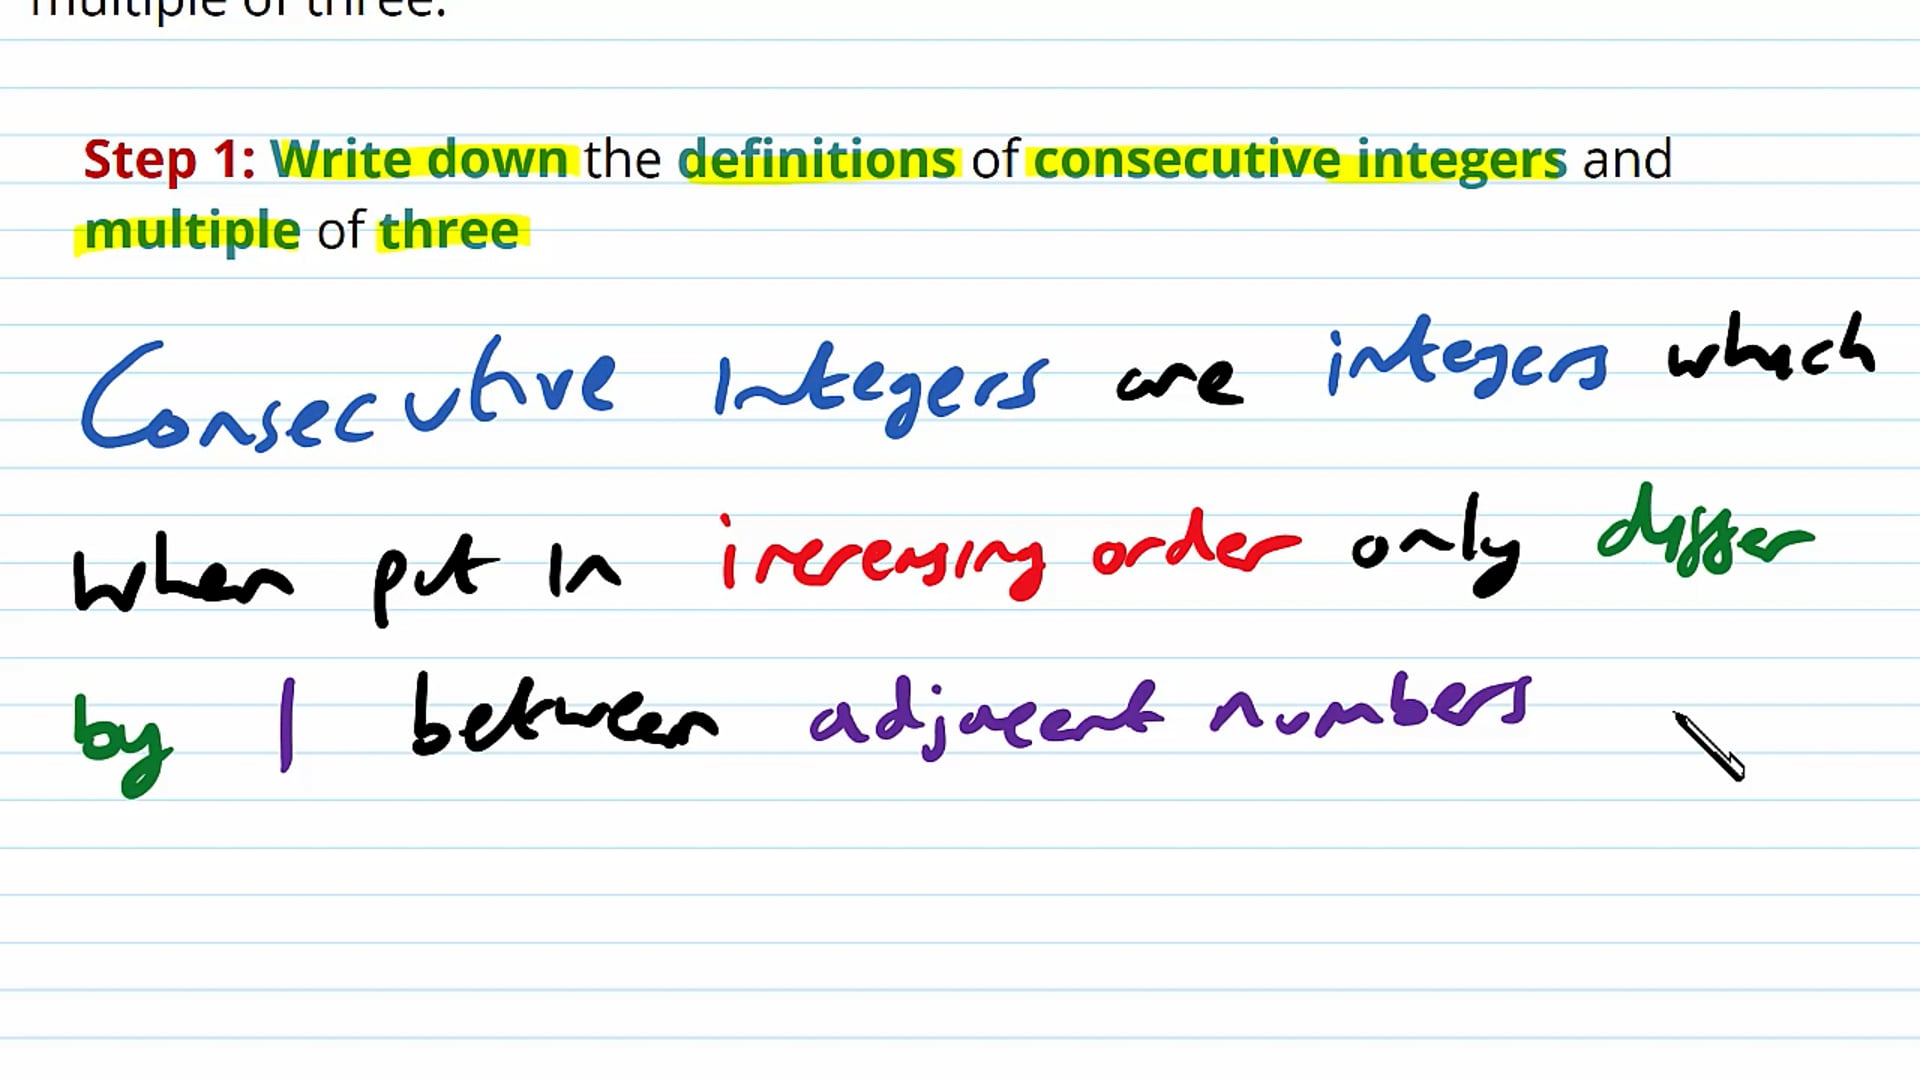 multiple of three.
Step 1: Write down the definitions of consecutive integers and
multiple of three
Consecutive Integers are integers which
when put in increasing order only differ
by 1 between adjacent numbers